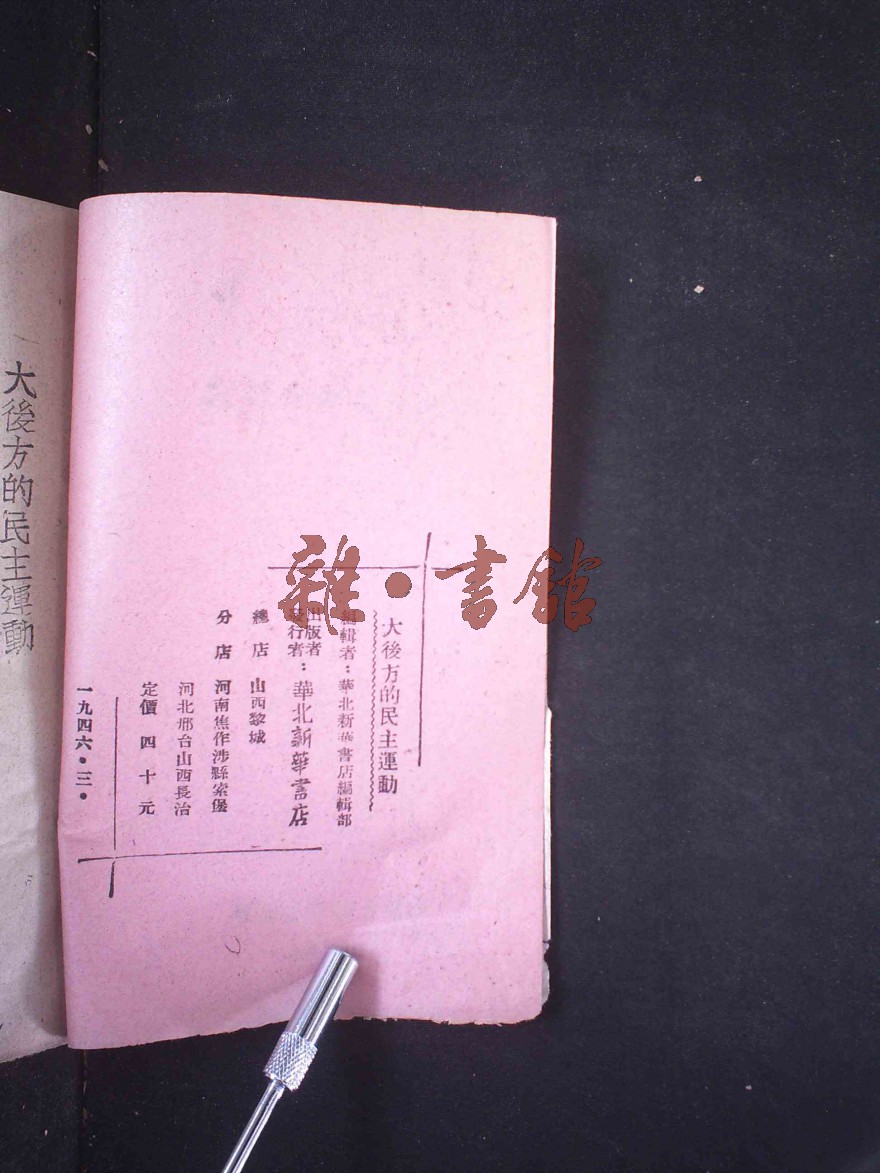 大後方的民主運動
編輯者：華北新華書店編輯部
出版者
發行者：華北新華書店
總店 山西黎城
分店 河南焦作涉縣索堡
河北邢台山西長治
定價 四十元
一九四六・三・
大後方的民主運動
雜・書館